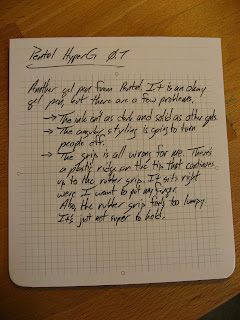 Pentel HyperG 0.7
Another gel pen from Pentel. It is an okay
gel pen, but there are a few problems.
→ The ink isn't as dark and solid as other gels.
→ The angular styling is going to turn
people off.
→ The grip is all wrong for me. There's
a plastic ridge on the tip that continues
up to the rubber grip. It sits right
were I want to put my finger.
Also, the rubber grip feels too lumpy.
It's just not super to hold.